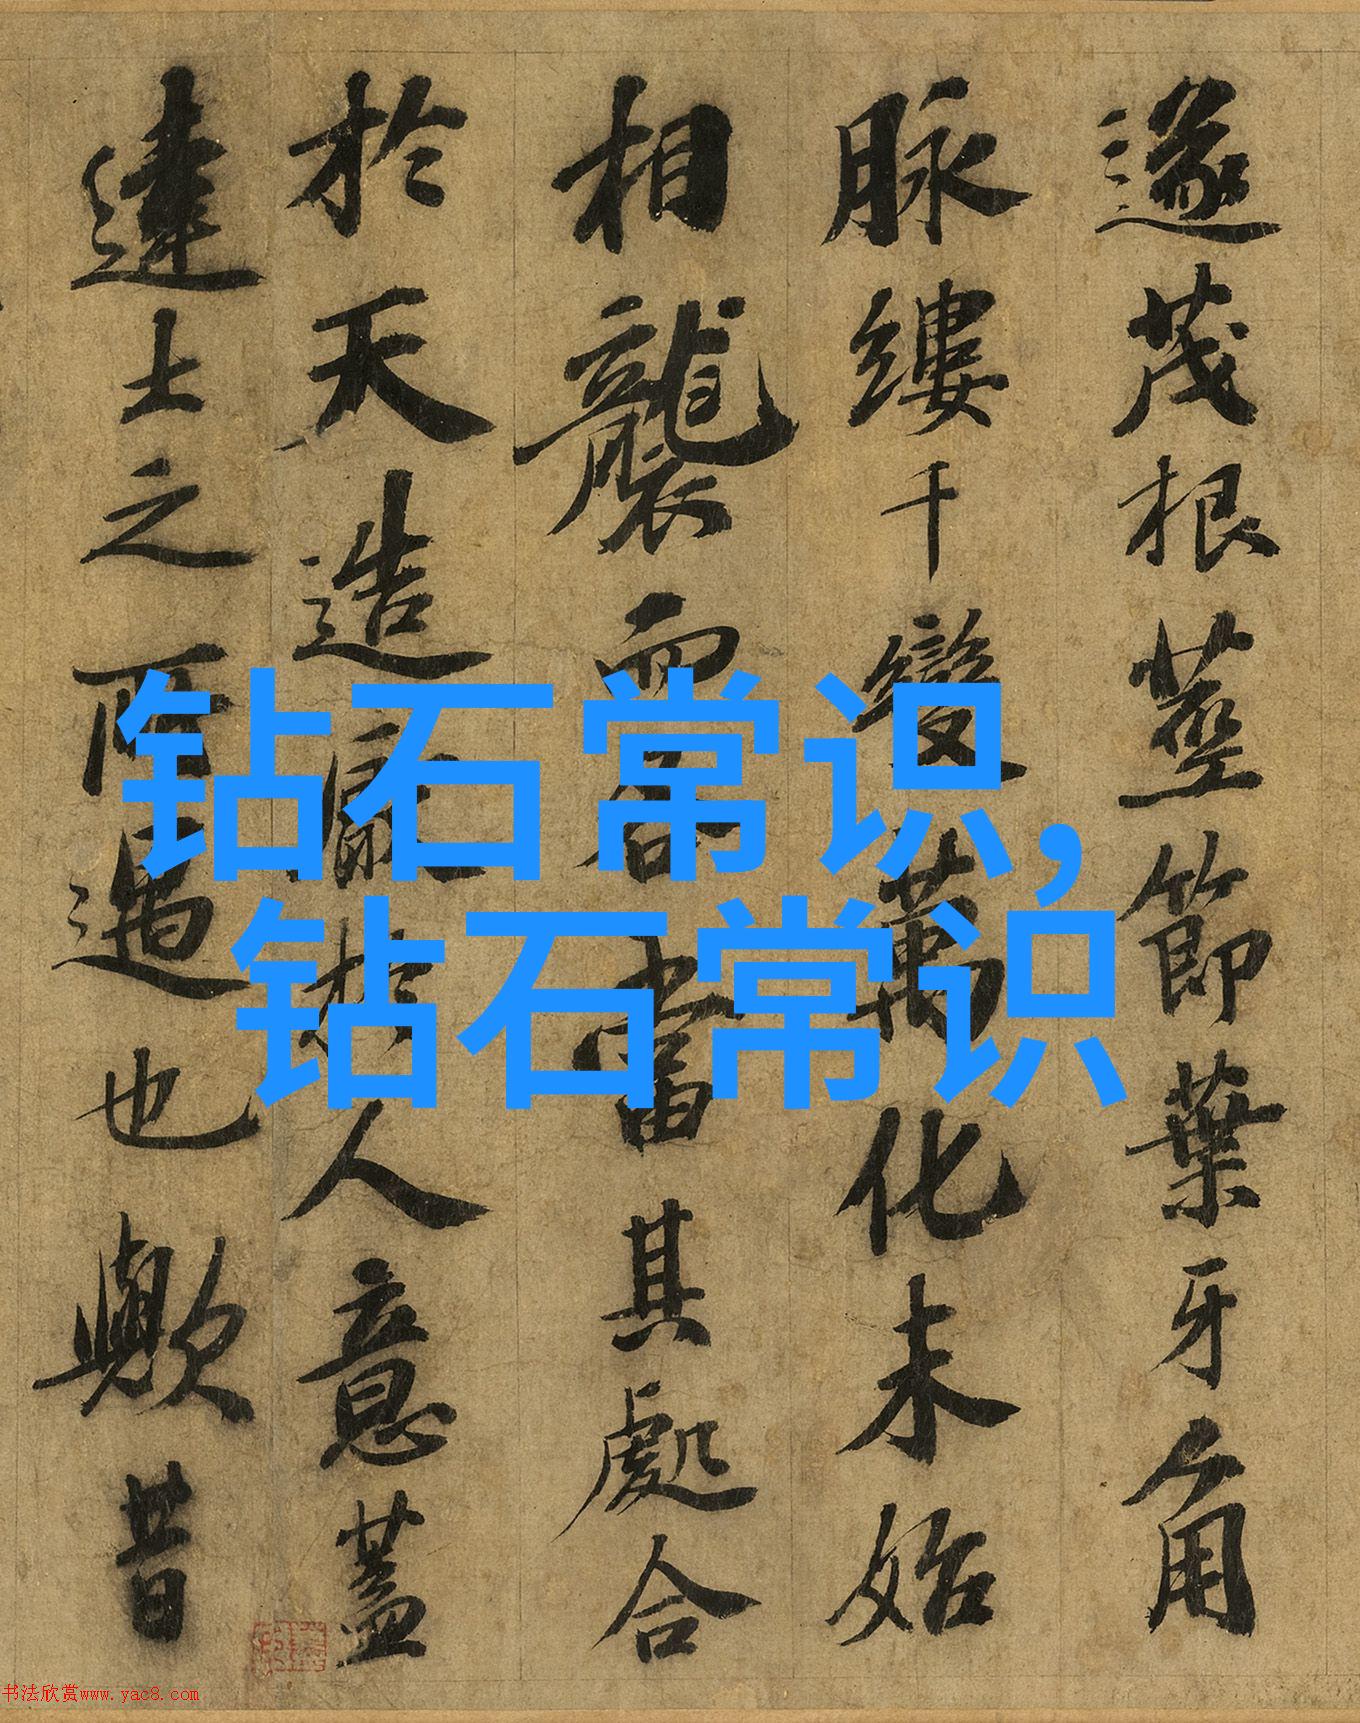 遂茂根莖節葉牙角
脉縷千變萬化未始
相襲而各當其處合
於天造厭於人意蓋
達士之所遇也歟昔
钻石常识,
钻石常识
书法欣赏www.yac8.com